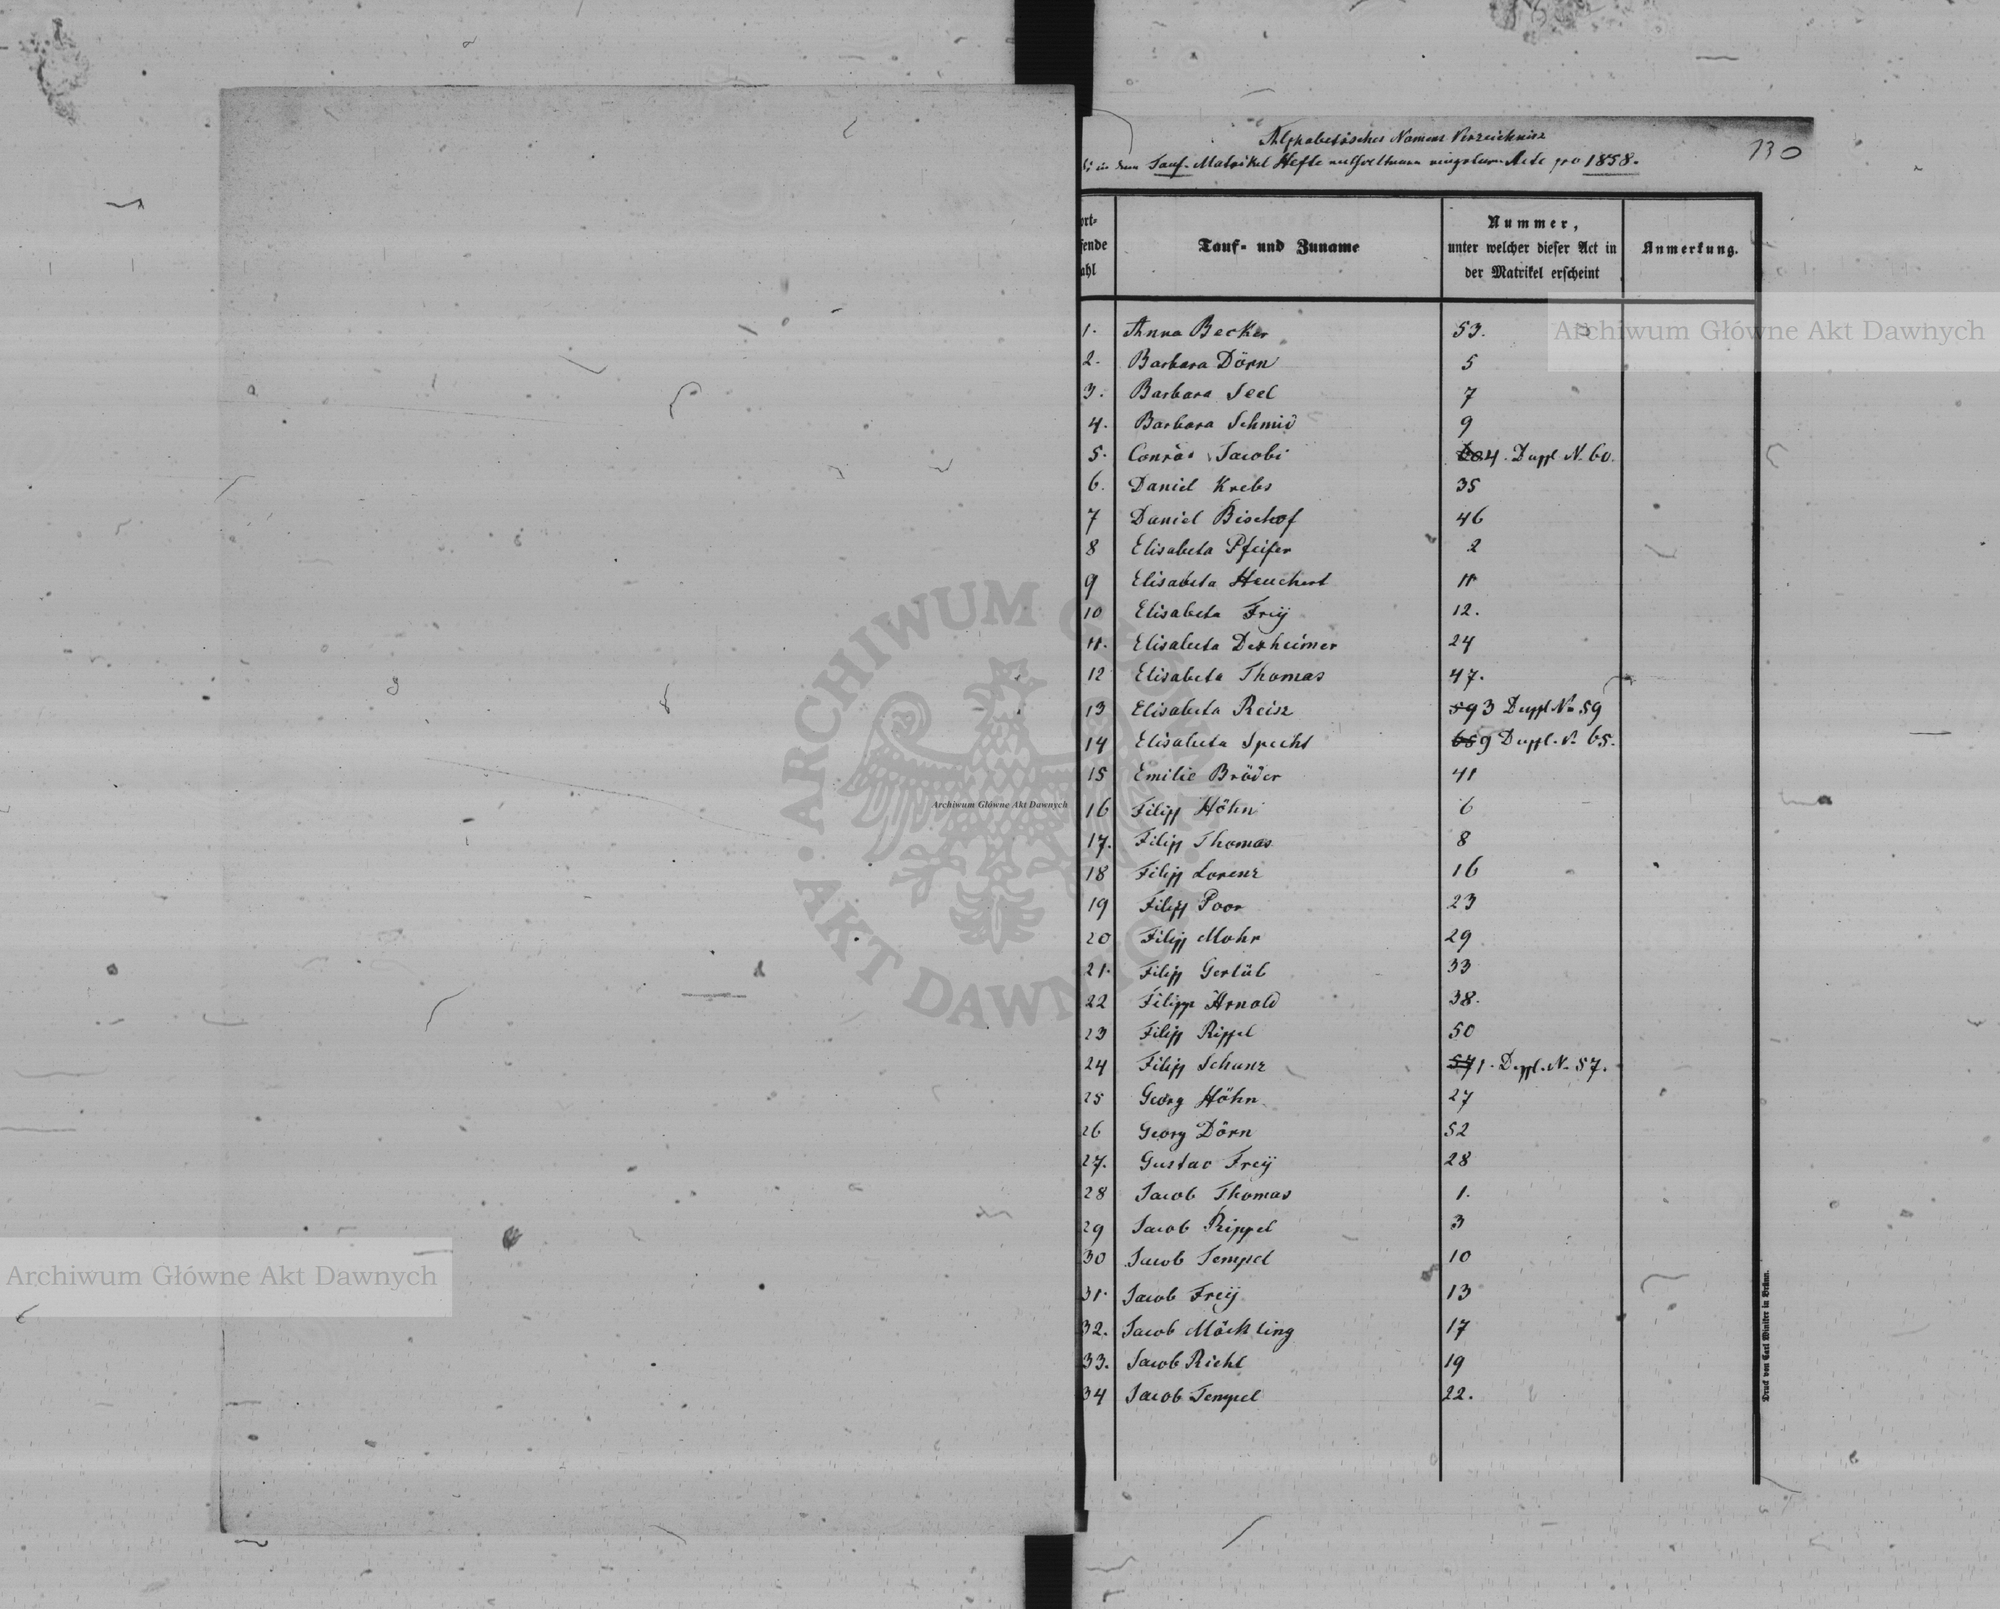 130
Alphabetisches Namens Verzeichnisz
in dem Tauf-Matrikel Hefte Acte pro 1858.
ort-
fende
ahl
Tauf- und Zuname
Nummer,
unter welcher dieser Act in
der Matrikel erscheint
Anmerkung.
1. Anna Becker 53.
2. Barbara Dörn 5
3. Barbara Seel 7
4. Barbara Schmid 9
5. Conrad Jacobi 60 4. Duppl N. 60.
6. Daniel Krebs 35
7 Daniel Bischof 46
8 Elisabeta Pfeifer 2
9 Elisabeta Heuchert 11
10 Elisabeta Freÿ 12.
11. Elisabeta Dexheimer 24
12 Elisabeta Thomas 47.
13 Elisabeta Reisz 59 3 Duppl No 59
14 Elisabeta Specht 65 9 Duppl. N. 65.
15 Emilie Bröder 41
16 Filipp Höhn 6
17. Filipp Thomas 8
18 Filipp Lorenz 16
19 Filipp Poor 23
20 Filipp Mohr 29
21. Filipp Gerlüb 33
22 Filipp Arnold 38.
23 Filipp Rippel 50
24 Filipp Schanz 57 1. Duppl. N. 57.
25 Georg Höhn 27
26 Georg Dörn 52
27. Gustav Freÿ 28
28 Jacob Thomas 1.
29 Jacob Rippel 3
30 Jacob Tempel 10
31. Jacob Freÿ 13
32. Jacob Möckling 17
33. Jacob Richl 19
34 Jacob Tempel 22.
Druck von Carl Winiker in Brünn.
Archiwum Główne Akt Dawnych
ARCHIWUM GŁÓWNE AKT DAWNYCH
Archiwum Główne Akt Dawnych
Archiwum Główne Akt Dawnych